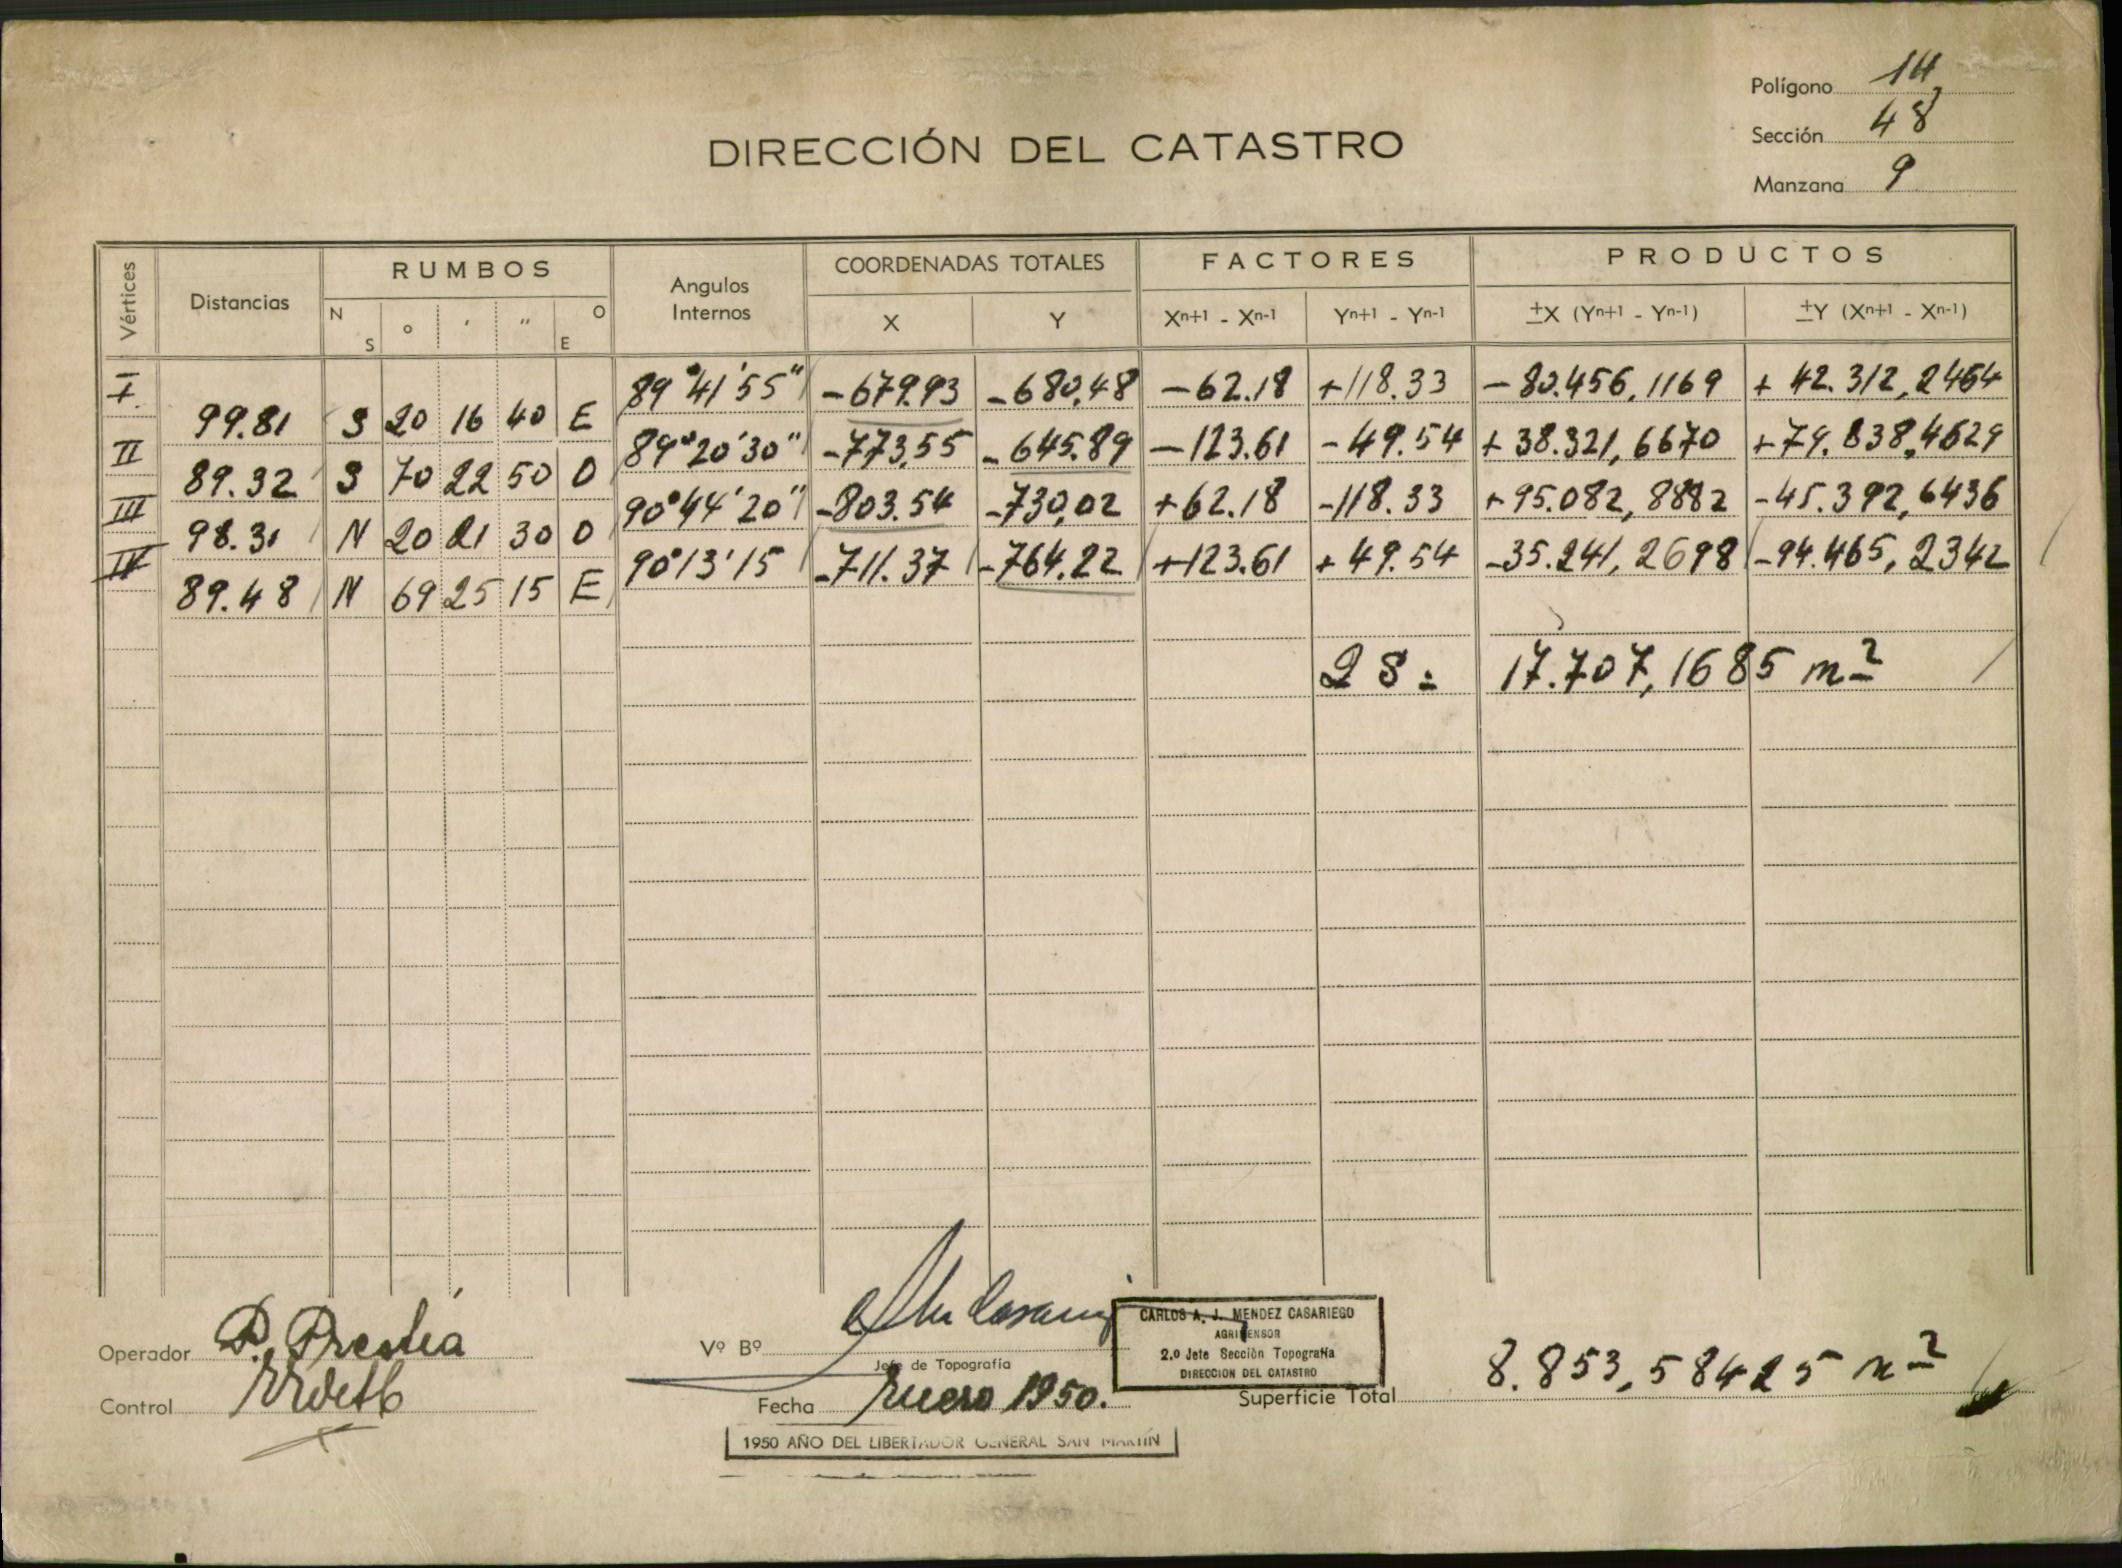 Polígono 14
Sección 48
Manzana 9
DIRECCIÓN DEL CATASTRO
Vértices Distancias RUMBOS Angulos Internos COORDENADAS TOTALES FACTORES PRODUCTOS
N S ° ' " O E X Y Xn+1 - Xn-1 Yn+1 - Yn-1 ±X (Yn+1 - Yn-1) ±Y (Xn+1 - Xn-1)
I 89°41'55" -679.93 -680,48 -62.18 +118.33 -80.456,1169 +42.312,2464
99.81 S 20 16 40 E
II 89°20'30" -773,55 -645.89 -123.61 -49.54 +38.321,6670 +79.838,4629
89.32 S 70 22 50 O
III 90°44'20" -803.54 -730,02 +62.18 -118.33 +95.082,8882 -45.392,6436
98.31 N 20 21 30 O
IV 90°13'15 -711.37 -764.22 +123.61 +49.54 -35.241,2698 -94.465,2342
89.48 N 69 25 15 E
2 S = 17.707,1685 m2
Operador P. Prestia
Control
Vº Bº
Jefe de Topografía
Fecha Enero 1950.
1950 AÑO DEL LIBERTADOR GENERAL SAN MARTÍN
CARLOS A. J. MENDEZ CASARIEGO
AGRIMENSOR
2.o Jefe Sección Topografía
DIRECCION DEL CATASTRO
Superficie Total 8.853,58425 m2